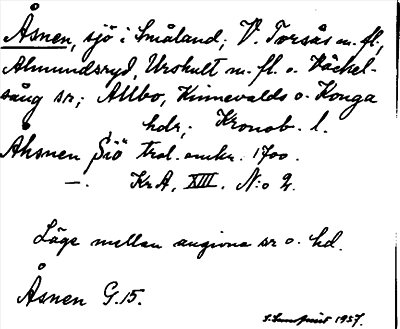 Åsnen, sjö i Småland; V. Torsås m. fl.,
Almundsryd, Urshult m. fl. o. Väckel-
sång sr; Allbo, Kinnevalds o. Konga
hdr; Kronob. l.
Åhsnen Siö trol. omkr. 1700.
—. KrA, XIII. N:o 2.
Läge mellan angivna sr o. hd.
Åsnen G.15.
1957.